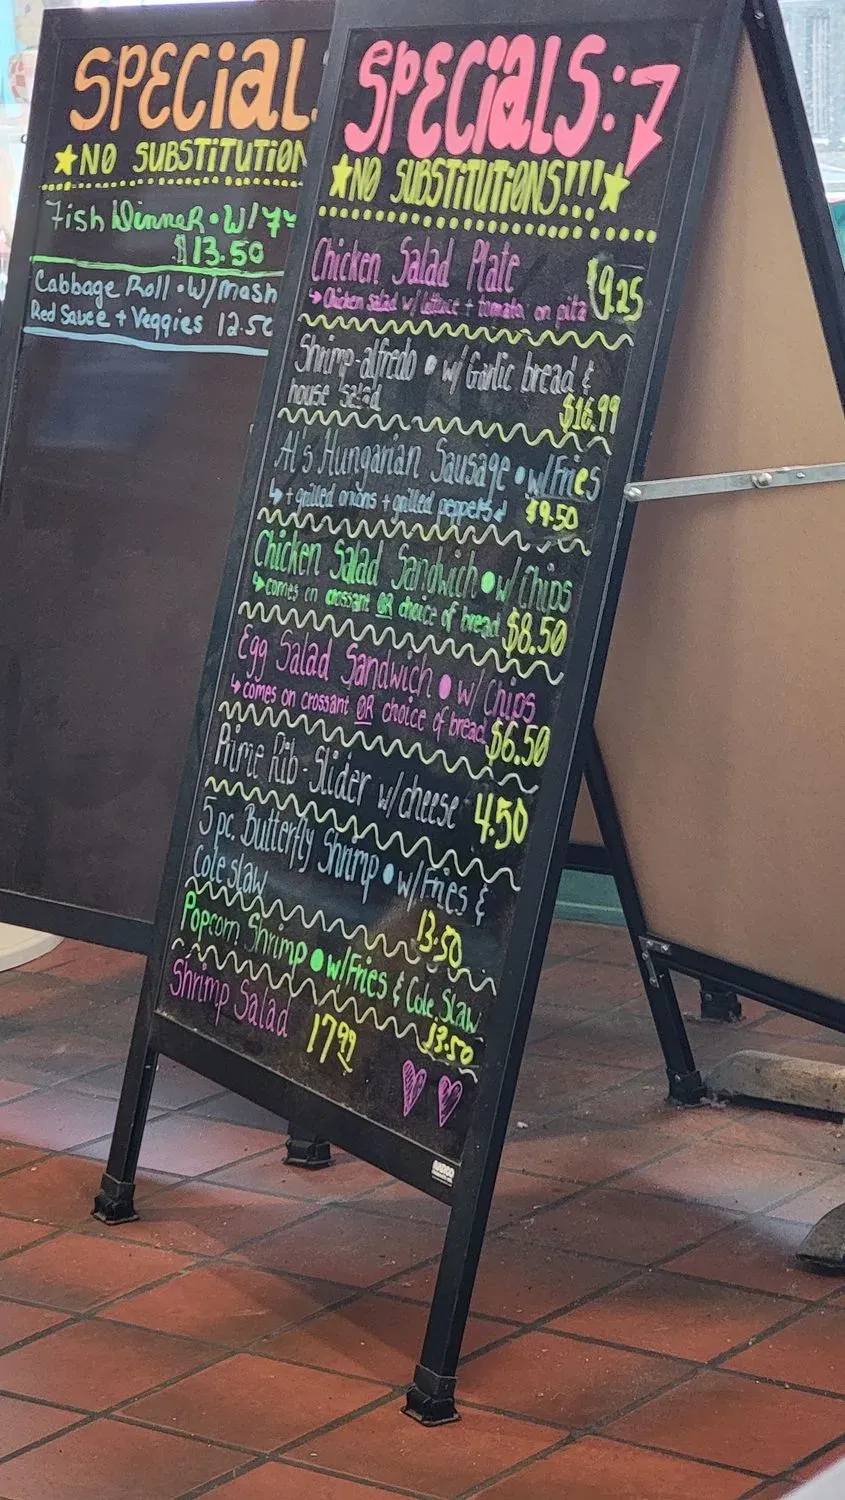 SPECIAL
NO SUBSTITUTION
Fish Dinner • W/
$13.50
Cabbage Roll • W/Mash
Red Sauce + Veggies 12.50
SPECIALS:
NO SUBSTITUTIONS!!!
Chicken Salad Plate $9.25
Chicken salad w/ lettuce + tomato on pita
Shrimp-alfredo • w/ Garlic bread &
house salad $16.99
Al's Hungarian Sausage • w/Fries
+ grilled onions + grilled peppers $9.50
Chicken Salad Sandwich • w/ Chips
comes on crossant OR choice of bread $8.50
Egg Salad Sandwich • w/ Chips
comes on crossant OR choice of bread $6.50
Prime Rib-Slider w/cheese 4.50
5 pc. Butterfly Shrimp • w/Fries &
Cole slaw 13.50
Popcorn Shrimp • w/Fries & Cole Slaw
13.50
Shrimp Salad 17.99